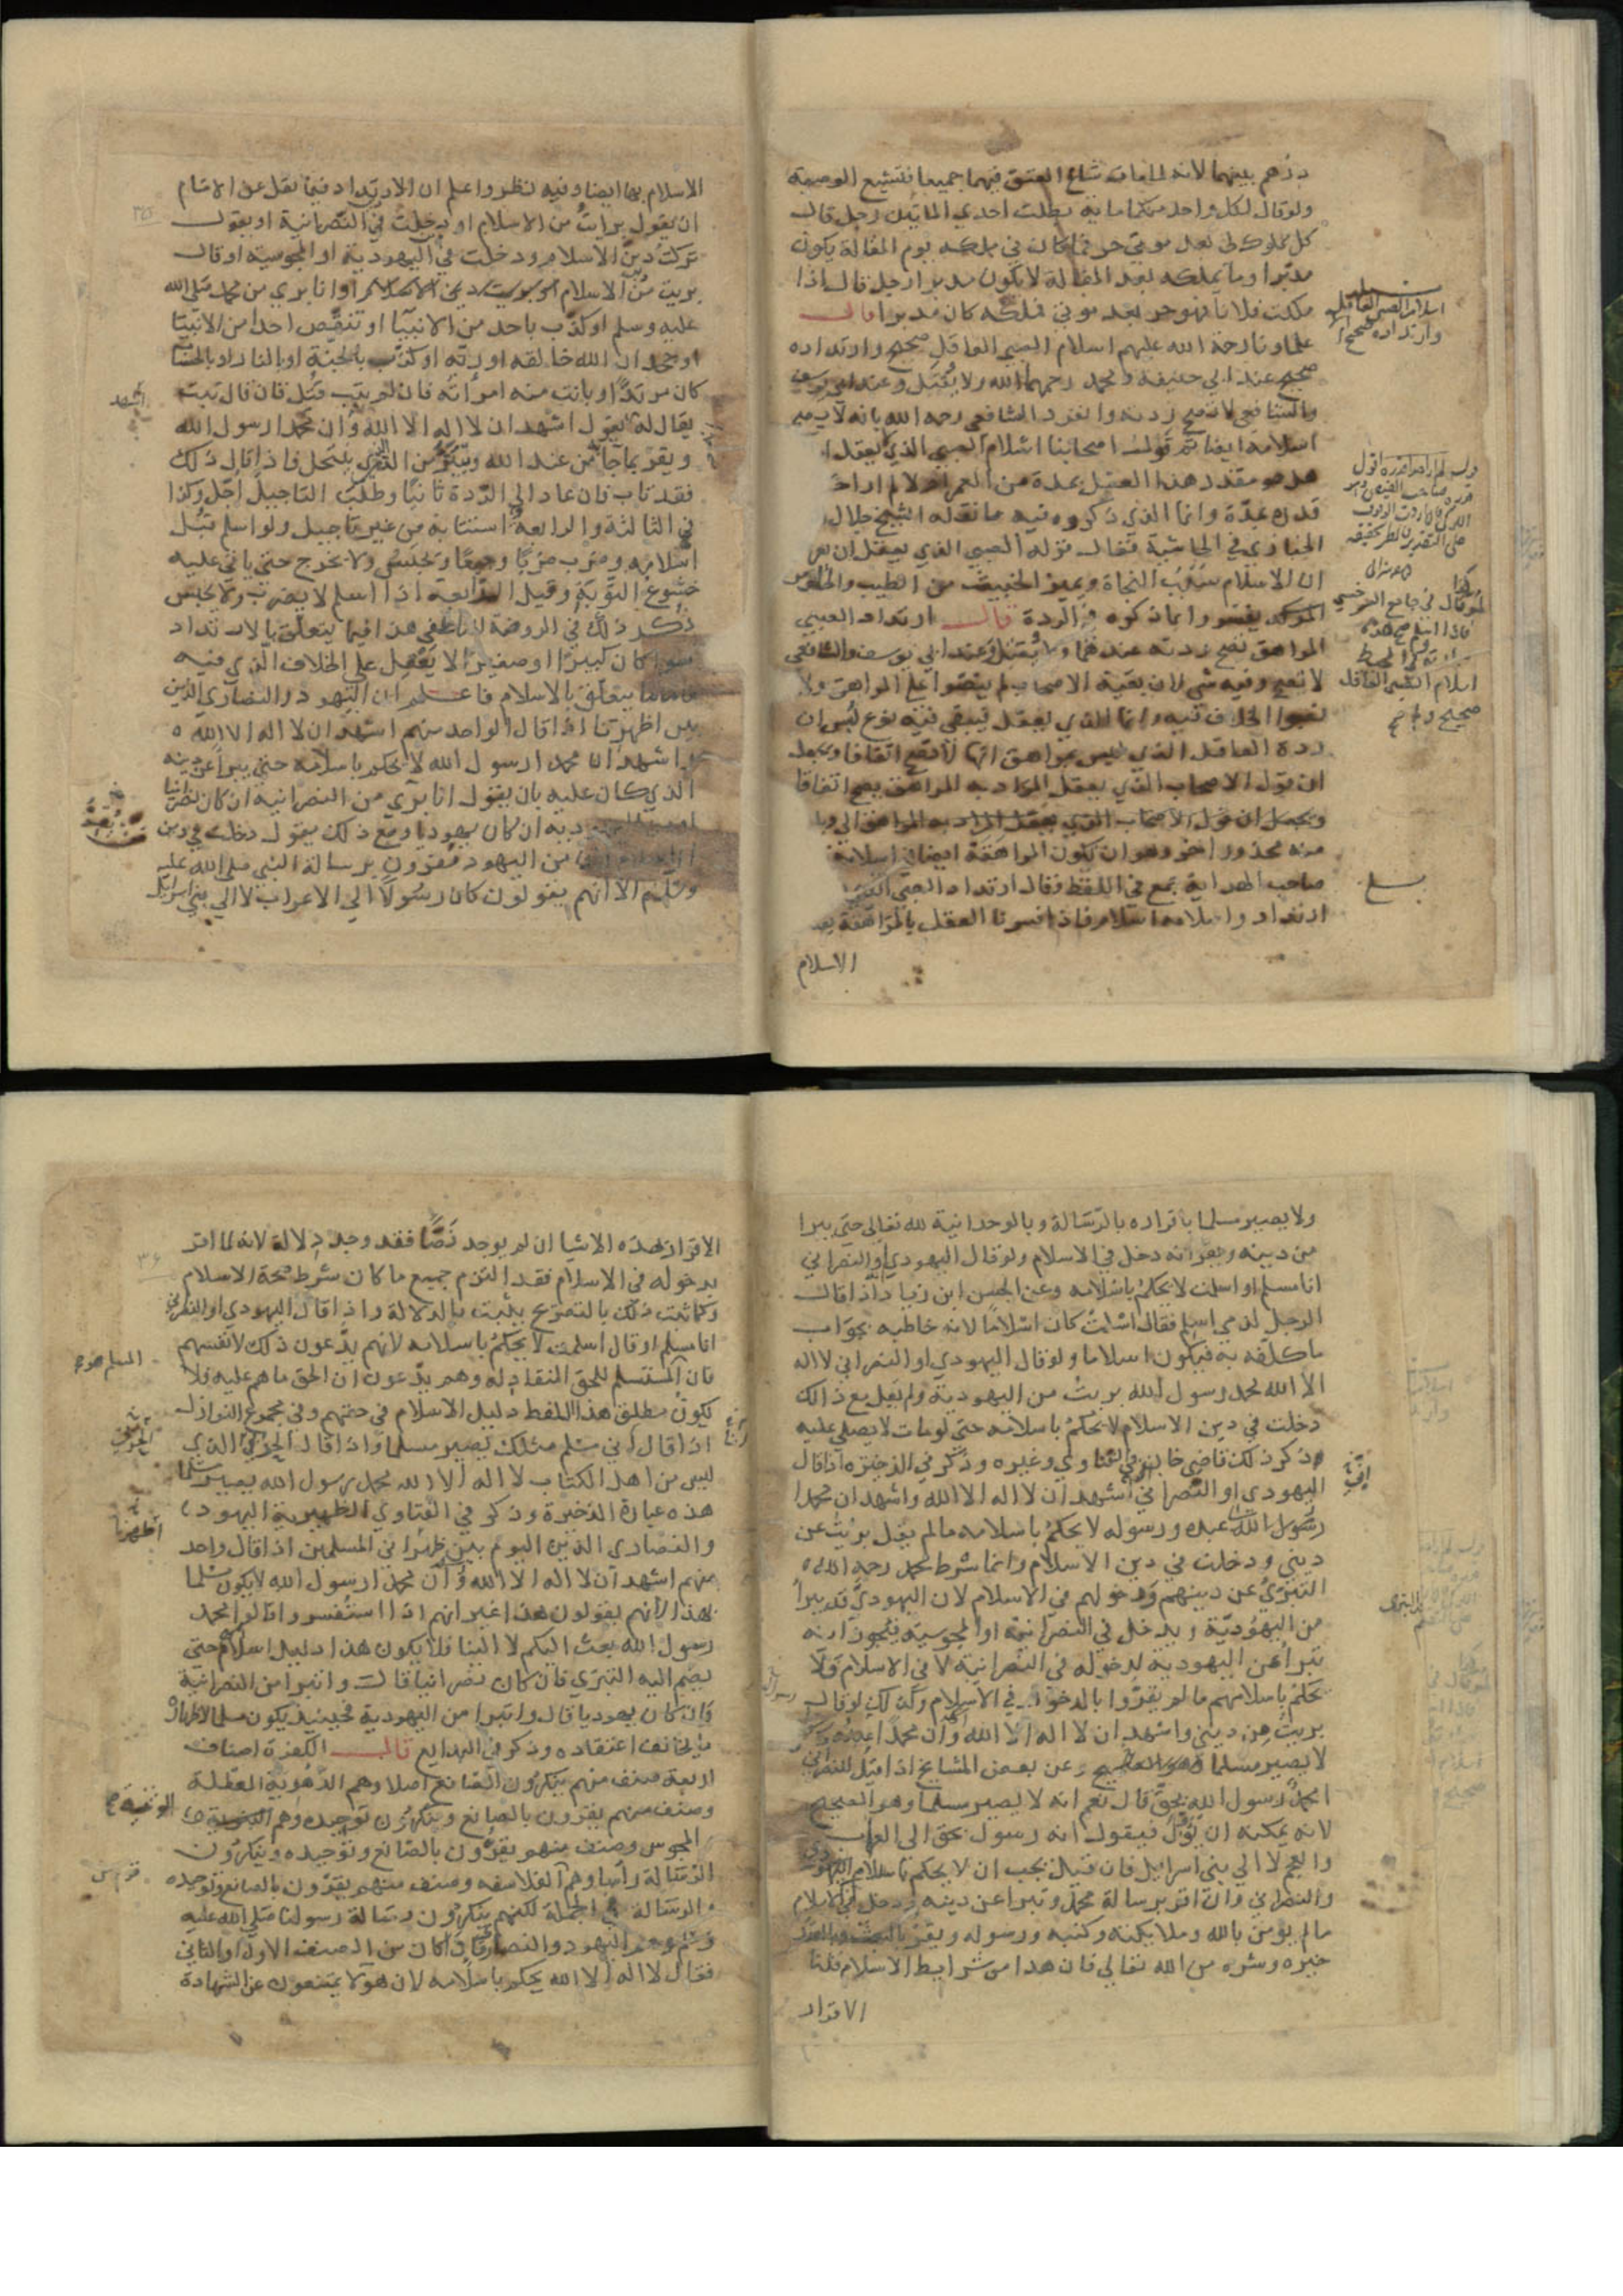 درهم بينهما لانه لما مات شاع العتق فيهما جميعا فتشيع الوصية
ولو قال لكل واحد منكما مائة بطلت احدي المائتين رجل قال
كل مملوك لي بعد موتي حر فما كان في ملكه يوم المقالة يكون
مدبرا وما يملكه بعد المقالة لا يكون مدبرا رجل قال اذا
ملكت فلانا فهو حر بعد موتي فملكه كان مدبرا قال
علماونا رحمة الله عليهم اسلام الصبي العاقل صحيح وارتداده
صحيح عند ابي حنيفة ومحمد رحمهما الله ولا يقتل وعند ابي يوسف
والشافعي لا تصح ردته وانفرد الشافعي رحمه الله بانه لا يصح
اسلامه ايضا ثم قول اصحابنا اسلام الصبي الذي يعقل
هل هو مقدر هذا العقل بمدة من العمر ام لا لم ار احدا
قدره بمدة وانما الذي ذكروه فيه ما نقله الشيخ جلال
الخبازي في الحاشية فقال قوله الصبي الذي يعقل ان
ان الاسلام سبب النجاة ويميز الخبيث من الطيب والحلو من
المر ولم يفسروا ما ذكروه في الردة قال ارتداد الصبي
المراهق تصح ردته عندهما ولا يقتل وعند ابي يوسف والشافعي
لا تصح وفيه شي لان بقية الاصحاب لم ينصوا علي المراهق ولا
نصبوا الخلاف فيه وانما الذي يعقل فيبقي فيه نوع لبس ان
ردة العاقل الذي ليس بمراهق انها لا تصح اتفاقا ويحمل
ان قول الاصحاب الذي يعقل المراد به المراهق يصح اتفاقا
ويحمل ان قول الاصحاب الذي يعقل المراد به المراهق
منه محذور اخر وهو ان يكون المراهقة ايضا في اسلامه
صاحب الهداية جمع في اللفظ وقال ارتداد الصبي الذي
ارتداد واسلامه اسلام فاذا فسرنا العقل بالمراهقة
الاسلام
اسلام الصبي العاقل
وارتداده صحيح
اسلام الصبي العاقل
صحيح
الاسلام بها ايضا وفيه نظر واعلم ان الارتداد فيما نقل عن الامام
ان يقول برات من الاسلام او دخلت في النصرانية او يقول
تركت دين الاسلام ودخلت في اليهودية او المجوسية او قال
بريت من الاسلام او انا بري من محمد صلي الله
عليه وسلم او كذب باحد من الانبيا او تنقص احدا من الانبيا
او جحد ان الله خالقه او ربه او كذب بالجنة او بالنار او بالحساب
كان مرتدا وبانت منه امراته فان لم يتب قتل فان قال تبت
اشهد
يقال له يقول اشهد ان لا اله الا الله وان محمدا رسول الله
ويقر بما جا من عند الله ويتبرا من الذي ينتحل فاذا قال ذلك
فقد تاب فان عاد الي الردة ثانيا وطلب التاجيل اجل وكذا
في الثالثة والرابعة استتابه من غير تاجيل ولو اسلم قبل
اسلامه وضرب ضربا وجيعا وحبس ولا يخرج حتي ياتي عليه
خشوع التوبة وقيل الرابعة اذا اسلم لا يضرب ولا يحبس
ذكر ذلك في الروضة للناطفي هذا فيما يتعلق بالارتداد
سوا كان كبيرا او صغيرا لا يعقل علي الخلاف الذي فيه
واما ما يتعلق بالاسلام فاعلم ان اليهود والنصاري الذين
بين اظهرنا اذا قال الواحد منهم اشهد ان لا اله الا الله
واشهد ان محمدا رسول الله لا يحكم باسلامه حتي يبرا عن دينه
الذي كان عليه بان يقول انا بري من النصرانية ان كان نصرانيا
ان كان يهوديا ومع ذلك يقول دخلت في دين
من اليهود مقرون برسالة النبي صلي الله عليه
وسلم الا انهم يقولون كان رسولا الي الاعراب لا الي بني اسرائيل
ولا يصير مسلما باقراره بالرسالة وبالوحدانية لله تعالي حتي يبرا
من دينه ويقر انه دخل في الاسلام ولو قال اليهودي او النصراني
انا مسلم او اسلمت لا يحكم باسلامه وعن الحسن ابن زياد اذا قال
الرجل لذمي اسلم فقال اسلمت كان اسلاما لانه خاطبه بجواب
ما كلفه به فيكون اسلاما ولو قال اليهودي او النصراني لا اله
الا الله محمد رسول الله بريت من اليهودية ولم يقل مع ذالك
دخلت في دين الاسلام لا يحكم باسلامه حتي لو مات لا يصلي عليه
وذكر ذلك قاضي خان في الفتاوي وغيره وذكر في الذخيرة اذا قال
اليهودي او النصراني اشهد ان لا اله الا الله واشهد ان محمدا
رسول الله عبده ورسوله لا يحكم باسلامه ما لم يقل بريت عن
ديني ودخلت في دين الاسلام وانما شرط محمد رحمه الله
التبري عن دينهم ودخولهم في الاسلام لان اليهودي قد يبرا
من اليهودية ويدخل في النصرانية او المجوسية فيجوز انه
تبرا عن اليهودية لدخوله في النصرانية لا في الاسلام ولا
يحكم باسلامهم ما لم يقروا بالدخول في الاسلام وكذلك لو قال
بريت من ديني واشهد ان لا اله الا الله وان محمدا عبده ورسوله
لا يصير مسلما وهو الصحيح وعن بعض المشايخ اذا قيل للنصراني
امحمد رسول الله بحق قال نعم انه لا يصير مسلما وهو الصحيح
لانه يمكنه ان يؤول فيقول انه رسول بحق الي العرب
والعجم لا الي بني اسرائيل فان قيل يجب ان لا يحكم باسلام اليهودي
والنصراني وان اقر برسالة محمد وتبرا عن دينه ودخل في الاسلام
ما لم يومن بالله وملايكته وكتبه ورسوله ويقر بالبعث وبالقدر
خيره وشره من الله تعالي فان هذا من شرايط الاسلام قلنا
الاقرار
الاقرار بهذه الاشيا ان لم يوجد نصا فقد وجد دلالة لانه لما اقر
بدخوله في الاسلام فقد التزم جميع ما كان شرط صحة الاسلام
وكما ثبت ذلك بالتصريح يثبت بالدلالة واذا قال اليهودي او النصراني
انا مسلم او قال اسلمت لا يحكم باسلامه لانهم يدعون ذلك لانفسهم
المسلم هو
فان المستسلم للحق المنقاد له وهم يدعون ان الحق ما هم عليه فلا
يكون مطلق هذا اللفظ دليل الاسلام في حقهم وفي مجموع النوازل
اذا قال اني مسلم مثلك يصير مسلما واذا قال الحربي الذي
ليس من اهل الكتاب لا اله الا الله محمد رسول الله يصير مسلما
هذه عبارة الذخيرة وذكر في الفتاوي الظهيرية اليهود
والنصاري الذين اليوم بين ظهراني المسلمين اذا قال واحد
منهم اشهد ان لا اله الا الله وان محمدا رسول الله لا يكون مسلما
بهذا لانهم يقولون هذا غير انهم اذا استفسروا قالوا محمد
رسول الله بعث اليكم لا الينا فلا يكون هذا دليل اسلامهم حتي
يضم اليه التبري فان كان نصرانيا قال واتبرا من النصرانية
وان كان يهوديا قال واتبرا من اليهودية فحينئذ يكون مسلما لاظهاره
ما يخالف اعتقاده وذكر في البدايع قال الكفرة اصناف
اربعة صنف منهم ينكرون الصانع اصلا وهم الدهرية المعطلة
وصنف منهم يقرون بالصانع وينكرون توحيده وهم الوثنية
المجوس وصنف منهم يقرون بالصانع وتوحيده وينكرون
الرسالة راسا وهم الفلاسفه وصنف منهم يقرون بالصانع وتوحيده
والرسالة في الجملة لكنهم ينكرون رسالة رسولنا صلي الله عليه
وسلم وهم اليهود والنصاري فان كان من الصنف الاول او الثاني
فقال لا اله الا الله يحكم باسلامه لان هولا يمتنعون عن الشهادة